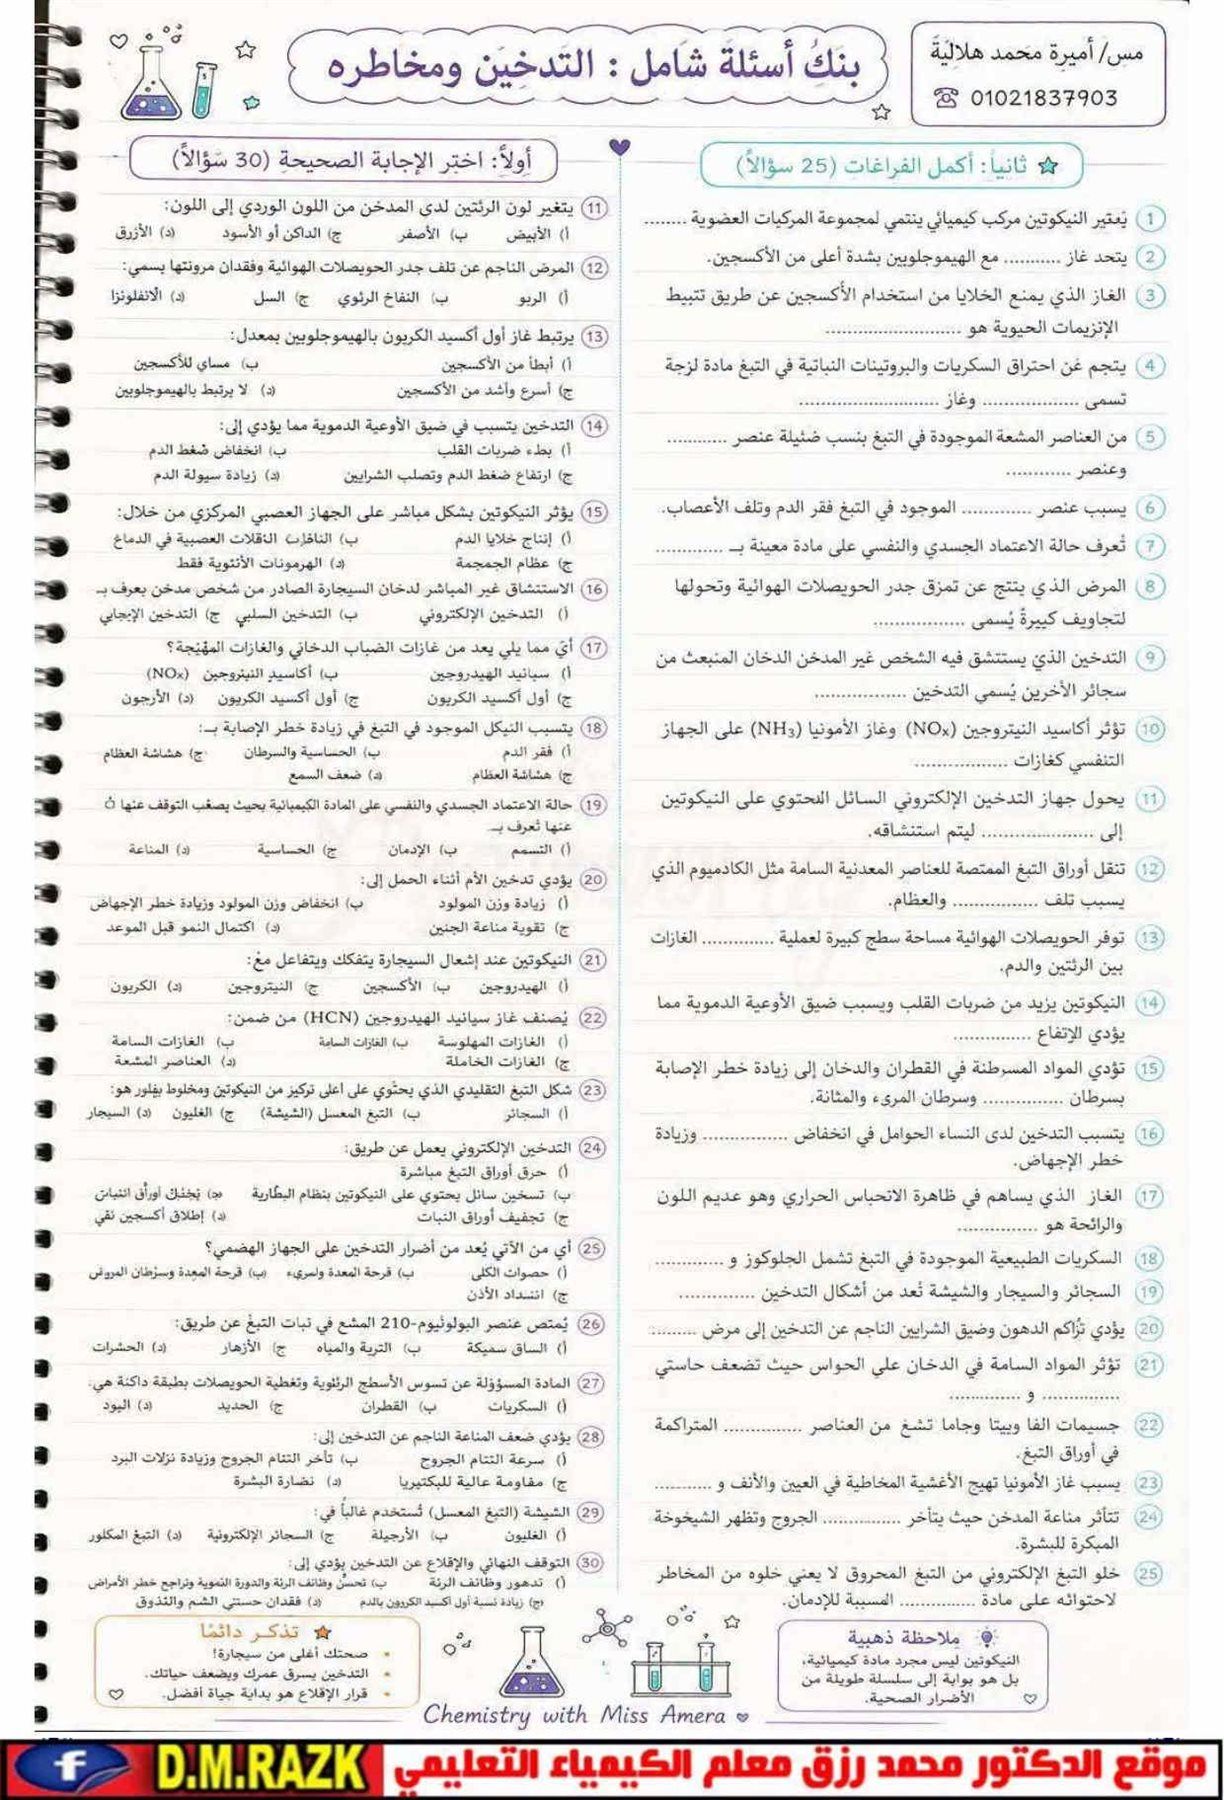 مس/ أميرة محمد هلالية
01021837903
بنك أسئلة شامل : التدخين ومخاطره
ثانياً: أكمل الفراغات (25 سؤالاً)
1 يُعتبر النيكوتين مركب كيميائي ينتمي لمجموعة المركبات العضوية ........
2 يتحد غاز ........... مع الهيموجلوبين بشدة أعلى من الأكسجين.
3 الغاز الذي يمنع الخلايا من استخدام الأكسجين عن طريق تثبيط
الإنزيمات الحيوية هو .........................
4 يتجم عن احتراق السكريات والبروتينات النباتية في التبغ مادة لزجة
تسمى .................. وغاز ..........................
5 من العناصر المشعة الموجودة في التبغ بنسب ضئيلة عنصر ...........
وعنصر ............
6 يسبب عنصر ............. الموجود في التبغ فقر الدم وتلف الأعصاب.
7 تُعرف حالة الاعتماد الجسدي والنفسي على مادة معينة بـ .............
8 المرض الذي ينتج عن تمزق جدر الحويصلات الهوائية وتحولها
لتجاويف كبيرة يُسمى .................
9 التدخين الذي يستنشق فيه الشخص غير المدخن الدخان المنبعث من
سجائر الأخرين يُسمى التدخين .................
10 تؤثر أكاسيد النيتروجين (NOx) وغاز الأمونيا (NH3) على الجهاز
التنفسي كغازات .................
11 يحول جهاز التدخين الإلكتروني السائل المحتوي على النيكوتين
إلى ..................... ليتم استنشاقه.
12 تنقل أوراق التبغ الممتصة للعناصر المعدنية السامة مثل الكادميوم الذي
يسبب تلف ................ والعظام.
13 توفر الحويصلات الهوائية مساحة سطح كبيرة لعملية .............. الغازات
بين الرئتين والدم.
14 النيكوتين يزيد من ضربات القلب ويسبب ضيق الأوعية الدموية مما
يؤدي الإتفاع ..............
15 تؤدي المواد المسرطنة في القطران والدخان إلى زيادة خطر الإصابة
بسرطان ............... وسرطان المريء والمثانة.
16 يتسبب التدخين لدى النساء الحوامل في انخفاض ................ وزيادة
خطر الإجهاض.
17 الغاز الذي يساهم في ظاهرة الاتحباس الحراري وهو عديم اللون
والرائحة هو ...............
18 السكريات الطبيعية الموجودة في التبغ تشمل الجلوكوز و .............
19 السجائر والسيجار والشيشة تُعد من أشكال التدخين ..............
20 يؤدي تزاكم الدهون وضيق الشرايين الناجم عن التدخين إلى مرض .........
21 تؤثر المواد السامة في الدخان على الحواس حيث تضعف حاستي
............... و ..............
22 جسيمات الفا وبيتا وجاما تشغ من العناصر ............... المتراكمة
في أوراق التبغ.
23 يسبب غاز الأمونيا تهيج الأغشية المخاطية في العيين والأنف و ...........
24 تتأثر مناعة المدخن حيث يتأخر ............... الجروح وتظهر الشيخوخة
المبكرة للبشرة.
25 خلو التبغ الإلكتروني من التبغ المحروق لا يعني خلوه من المخاطر
لاحتوائه على مادة .............. المسببة للإدمان.
أولاً: اختر الإجابة الصحيحة (30 سؤالاً)
11 يتغير لون الرئتين لدى المدخن من اللون الوردي إلى اللون:
أ) الأبيض ب) الأصفر ج) الداكن أو الأسود (د) الأزرق
12 المرض الناجم عن تلف جدر الحويصلات الهوائية وفقدان مرونتها يسمى:
أ) الربو ب) النفاخ الرئوي ج) السل (د) الانفلونزا
13 يرتبط غاز أول أكسيد الكربون بالهيموجلوبين بمعدل:
أ) أبطأ من الأكسجين ب) مساي للأكسجين
ج) أسرع وأشد من الأكسجين (د) لا يرتبط بالهيموجلوبين
14 التدخين يتسبب في ضيق الأوعية الدموية مما يؤدي إلى:
أ) بطء ضربات القلب ب) انخفاض ضغط الدم
ج) ارتفاع ضغط الدم وتصلب الشرايين (د) زيادة سيولة الدم
15 يؤثر النيكوتين بشكل مباشر على الجهاز العصبي المركزي من خلال:
أ) إنتاج خلايا الدم ب) النقلات العصبية في الدماغ
ج) عظام الجمجمة (د) الهرمونات الأنثوية فقط
16 الاستنشاق غير المباشر لدخان السيجارة الصادر من شخص مدخن يعرف بـ
أ) التدخين الإلكتروني ب) التدخين السلبي ج) التدخين الإيجابي
17 أي مما يلي يعد من غازات الضباب الدخاني والغازات المهيجة؟
أ) سيانيد الهيدروجين ب) أكاسيد النيتروجين (NOx)
ج) أول أكسيد الكربون ج) أول أكسيد الكربون (د) الأرجون
18 يتسبب النيكل الموجود في التبغ في زيادة خطر الإصابة بـ:
أ) فقر الدم ب) الحساسية والسرطان ج) هشاشة العظام
ج) هشاشة العظام (د) ضعف السمع
19 حالة الاعتماد الجسدي والنفسي على المادة الكيميائية بحيث يصعب التوقف عنها
عنها تعرف بـ
أ) التسمم ب) الإدمان ج) الحساسية (د) المناعة
20 يؤدي تدخين الأم أثناء الحمل إلى:
أ) زيادة وزن المولود ب) انخفاض وزن المولود وزيادة خطر الإجهاض
ج) تقوية مناعة الجنين (د) اكتمال النمو قبل الموعد
21 النيكوتين عند إشعال السيجارة يتفكك ويتفاعل مع:
أ) الهيدروجين ب) الأكسجين ج) النيتروجين (د) الكربون
22 يُصنف غاز سيانيد الهيدروجين (HCN) من ضمن:
أ) الغازات المهلوسة ب) الغازات السامة ب) الغازات السامة
ج) الغازات الخاملة (د) العناصر المشعة
23 شكل التبغ التقليدي الذي يحتوي على أعلى تركيز من النيكوتين ومخلوط بفلور هو:
أ) السجائر ب) التبغ المعسل (الشيشة) ج) الغليون (د) السيجار
24 التدخين الإلكتروني يعمل عن طريق:
أ) حرق أوراق التبغ مباشرة
ب) تسخين سائل يحتوي على النيكوتين بنظام البطارية أوراق النبات
ج) تجفيف أوراق النبات (د) إطلاق أكسجين نقي
25 أي من الآتي يُعد من أضرار التدخين على الجهاز الهضمي؟
أ) حصوات الكلى ب) قرحة المعدة ولمريء (ب) قرحة المعدة وسرطان المروض
ج) انسداد الأذن
26 يُمتص عنصر البولونيوم-210 المشع في نبات التبغ عن طريق:
أ) الساق سميكة ب) التربة والمياه ج) الأزهار (د) الحشرات
27 المادة المسؤولة عن تسوس الأسطح الرئوية وتغطية الحويصلات بطبقة داكنة هي:
أ) السكريات ب) القطران ج) الحديد (د) اليود
28 يؤدي ضعف المناعة الناجم عن التدخين إلى:
أ) سرعة التئام الجروح ب) تأخر التئام الجروح وزيادة نزلات البرد
ج) مقاومة عالية للبكتيريا (د) نضارة البشرة
29 الشيشة (التبغ المعسل) تُستخدم غالباً في:
أ) الغليون ب) الأرجيلة ج) السجائر الإلكترونية (د) التبغ المكلور
30 التوقف النهائي والإقلاع عن التدخين يؤدي إلى:
أ) تدهور وظائف الرئة ب) تحسن وظائف الرئة والدورة الدموية وتراجع خطر الأمراض
ج) زيادة نسبة أول أكسيد الكربون بالدم (د) فقدان حستي الشم والتذوق
ملاحظة ذهبية
النيكوتين ليس مجرد مادة كيميائية،
بل هو بوابة إلى سلسلة طويلة من
الأضرار الصحية.
تذكر دائمًا
• صحتك أغلى من سيجارة!
• التدخين يسرق عمرك ويضعف حياتك.
• قرار الإقلاع هو بداية حياة أفضل.
Chemistry with Miss Amera
موقع الدكتور محمد رزق معلم الكيمياء التعليمي
D.M.RAZK
f